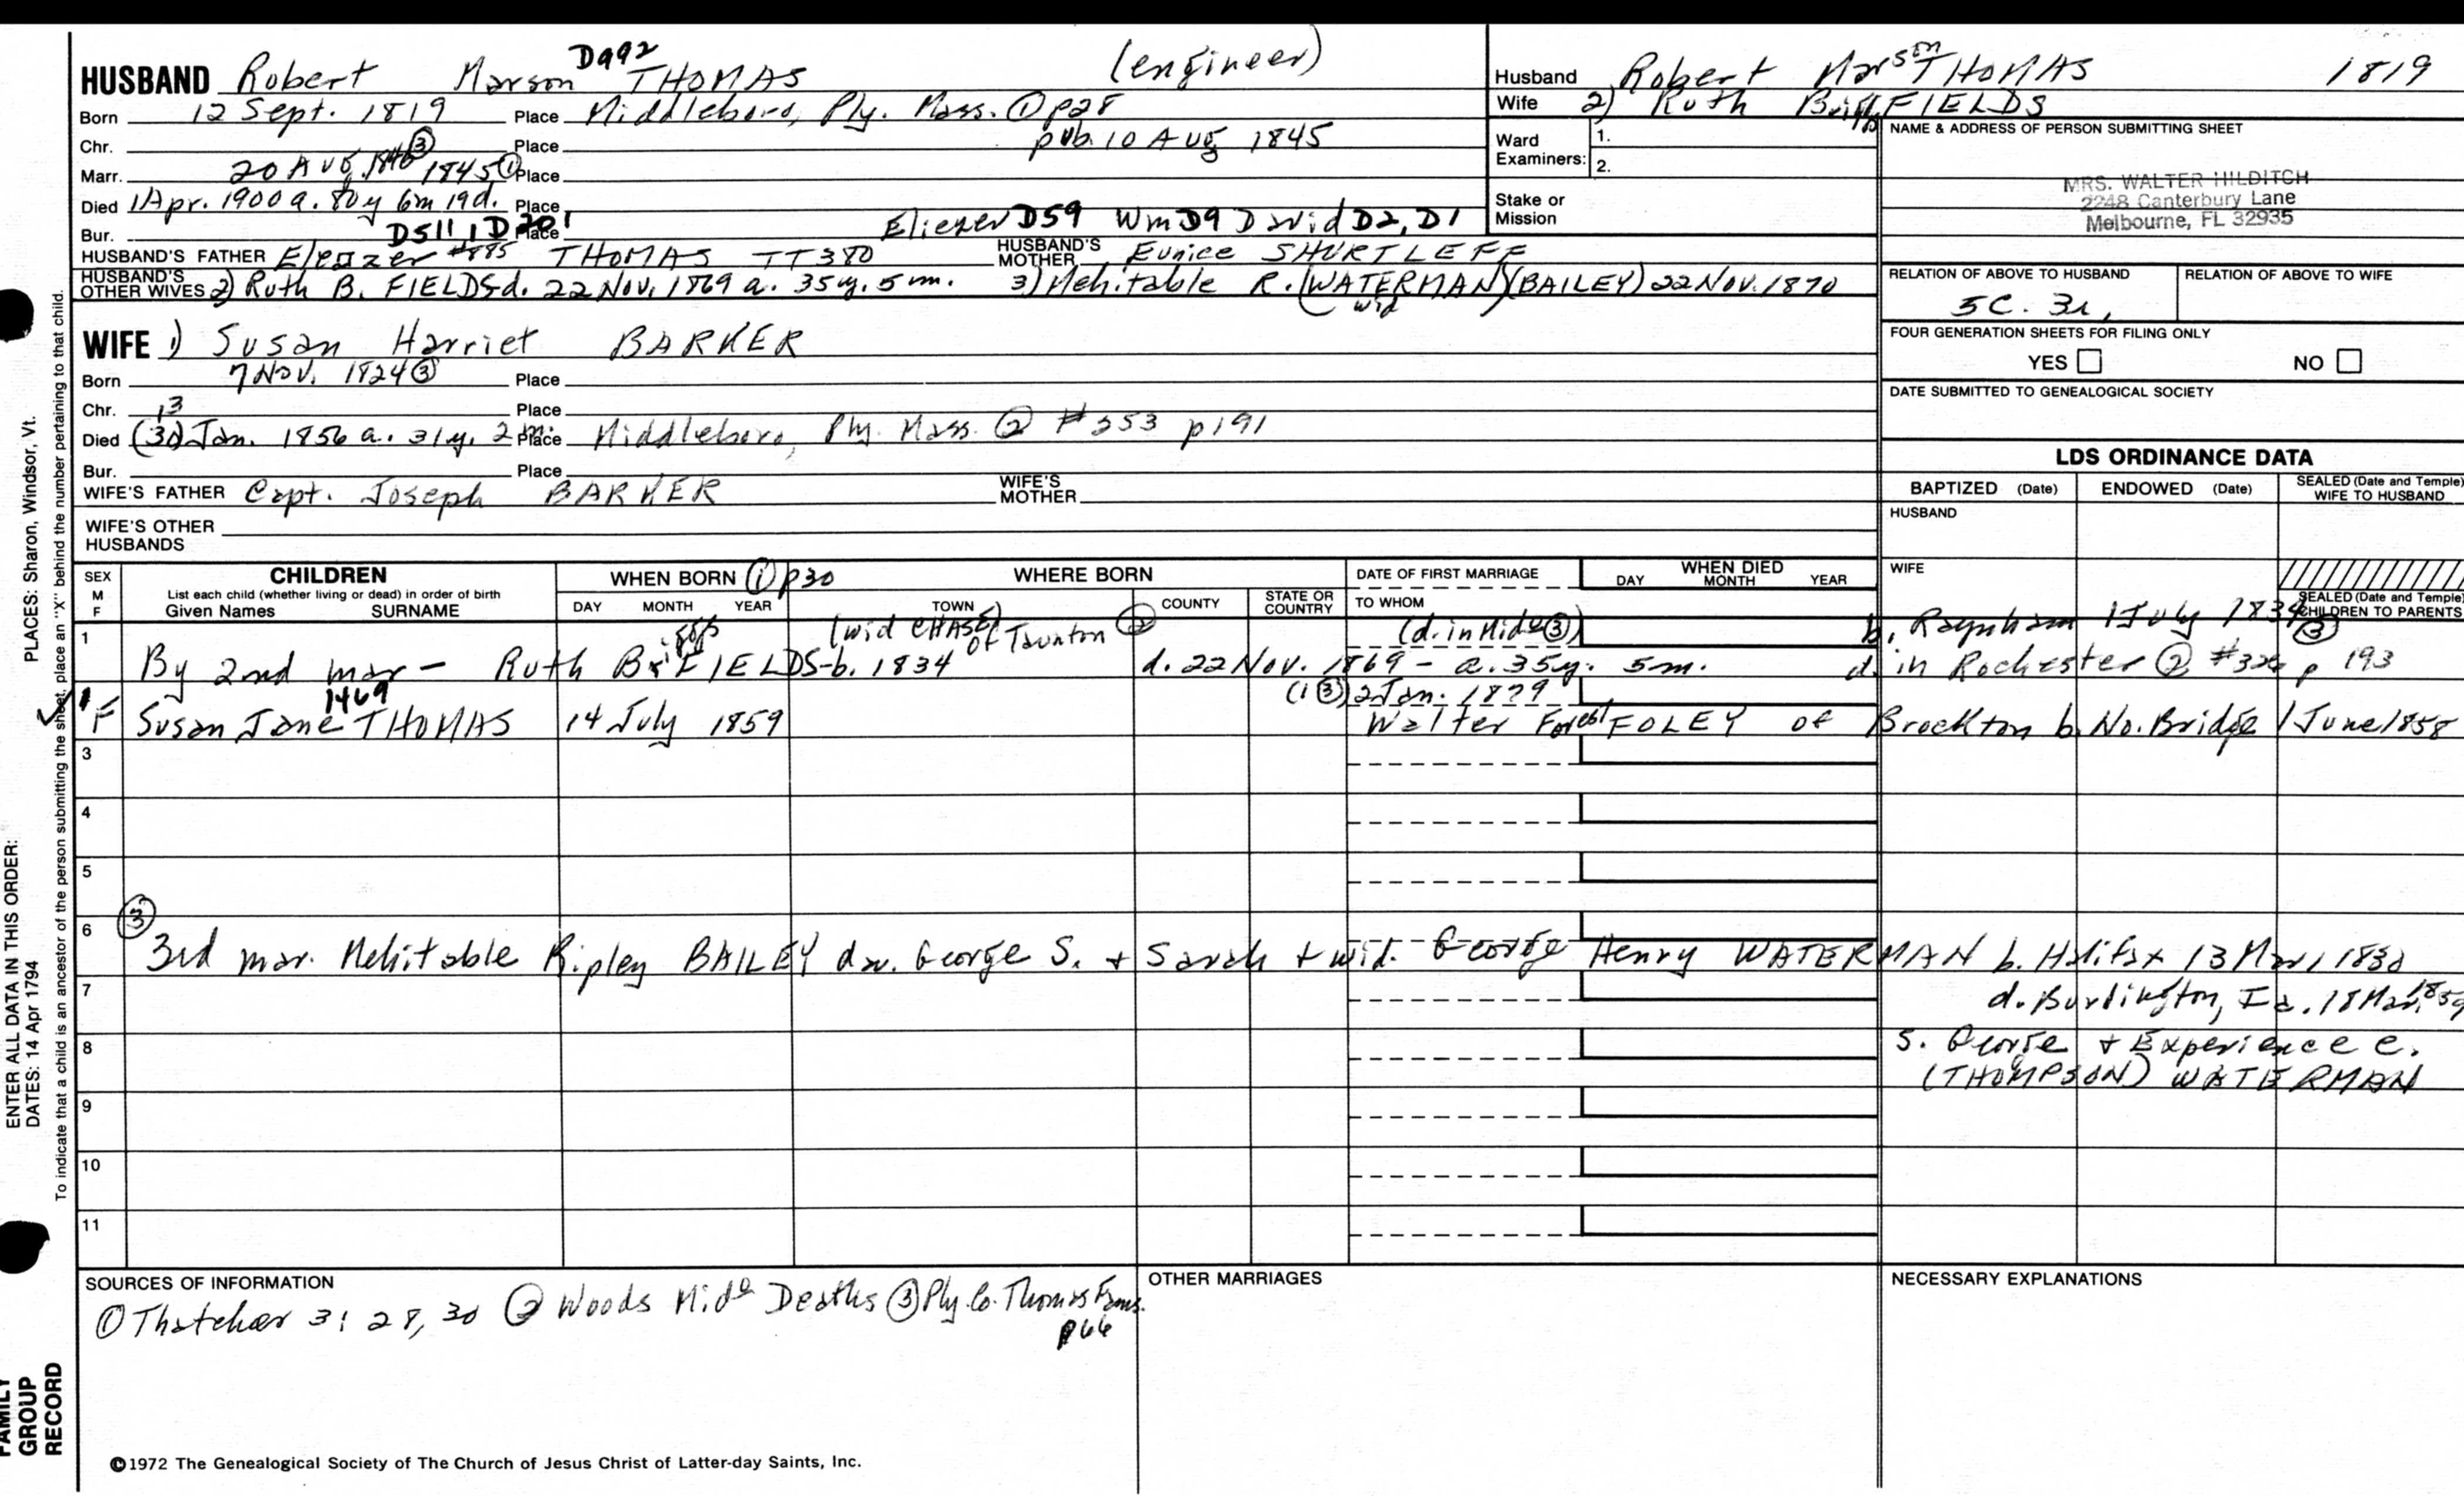 D992
HUSBAND Robert Marson THOMAS (engineer)
Born 12 Sept. 1819 Place Middleboro, Ply. Mass. ① p28
Chr. Place pub. 10 Aug 1845
Marr. 20 Aug 1845 ① ③ Place
Died 1 Apr. 1900 a. 80y 6m 19d. Place
Bur. D511, D201 Place Eliezer D59 Wm D9 David D2, D1
HUSBAND'S FATHER Eleazer #885 THOMAS TT380 HUSBAND'S MOTHER Eunice SHURTLEFF
HUSBAND'S OTHER WIVES 2) Ruth B. FIELDS d. 22 Nov. 1869 a. 35y. 5m. 3) Mehitable R. (WATERMAN) (BAILEY) 22 Nov. 1870
wid
WIFE 1) Susan Harriet BARKER
Born 7 Nov. 1824 ③ Place
Chr. 13 Place
Died (30) Jan. 1856 a. 31y. 2m. Place Middleboro, Ply. Mass. ② #353 p191
Bur. Place
WIFE'S FATHER Capt. Joseph BARKER WIFE'S MOTHER
WIFE'S OTHER HUSBANDS
Husband Robert Marson THOMAS 1819
Wife 2) Ruth FIELDS
Ward Examiners: 1.
2.
Stake or Mission
NAME & ADDRESS OF PERSON SUBMITTING SHEET
MRS. WALTER HILDITCH
2248 Canterbury Lane
Melbourne, FL 32935
RELATION OF ABOVE TO HUSBAND RELATION OF ABOVE TO WIFE
5C. 3r.
FOUR GENERATION SHEETS FOR FILING ONLY
YES NO
DATE SUBMITTED TO GENEALOGICAL SOCIETY
LDS ORDINANCE DATA
BAPTIZED (Date) ENDOWED (Date) SEALED (Date and Temple) WIFE TO HUSBAND
HUSBAND
WIFE
SEALED (Date and Temple) CHILDREN TO PARENTS
SEX M F CHILDREN List each child (whether living or dead) in order of birth Given Names SURNAME
WHEN BORN ① p30 DAY MONTH YEAR
WHERE BORN TOWN COUNTY STATE OR COUNTRY
DATE OF FIRST MARRIAGE TO WHOM
WHEN DIED DAY MONTH YEAR
1 (wid CHASE) of Taunton ② (d. in Mid ③) b. Raynham 1 July 1834 ③
By 2nd mar - Ruth FIELDS - b. 1834 d. 22 Nov. 1869 - a. 35y. 5m. d. in Rochester ② p 193
1469 (1 ③) 2 Jan. 1879
1 F Susan Jane THOMAS 14 July 1859 Walter Forest FOLEY of Brockton b. No. Bridge 1 June 1858
3
4
5
6 ③
3rd mar. Mehitable Ripley BAILEY dau. George S. + Sarah + wid. George Henry WATERMAN b. Halifax 13 Mar, 1830
7 d. Burlington, Ia. 18 Mar. 1859
8 S. George + Experience C.
(THOMPSON) WATERMAN
9
10
11
SOURCES OF INFORMATION
① Thatcher 3: 28, 30 ② Woods Mid Deaths ③ Ply. Co. Thomas Fams.
p66
OTHER MARRIAGES
NECESSARY EXPLANATIONS
©1972 The Genealogical Society of The Church of Jesus Christ of Latter-day Saints, Inc.
ENTER ALL DATA IN THIS ORDER:
DATES: 14 Apr 1794
PLACES: Sharon, Windsor, Vt.
To indicate that a child is an ancestor of the person submitting the sheet, place an "X" behind the number pertaining to that child.
FAMILY GROUP RECORD